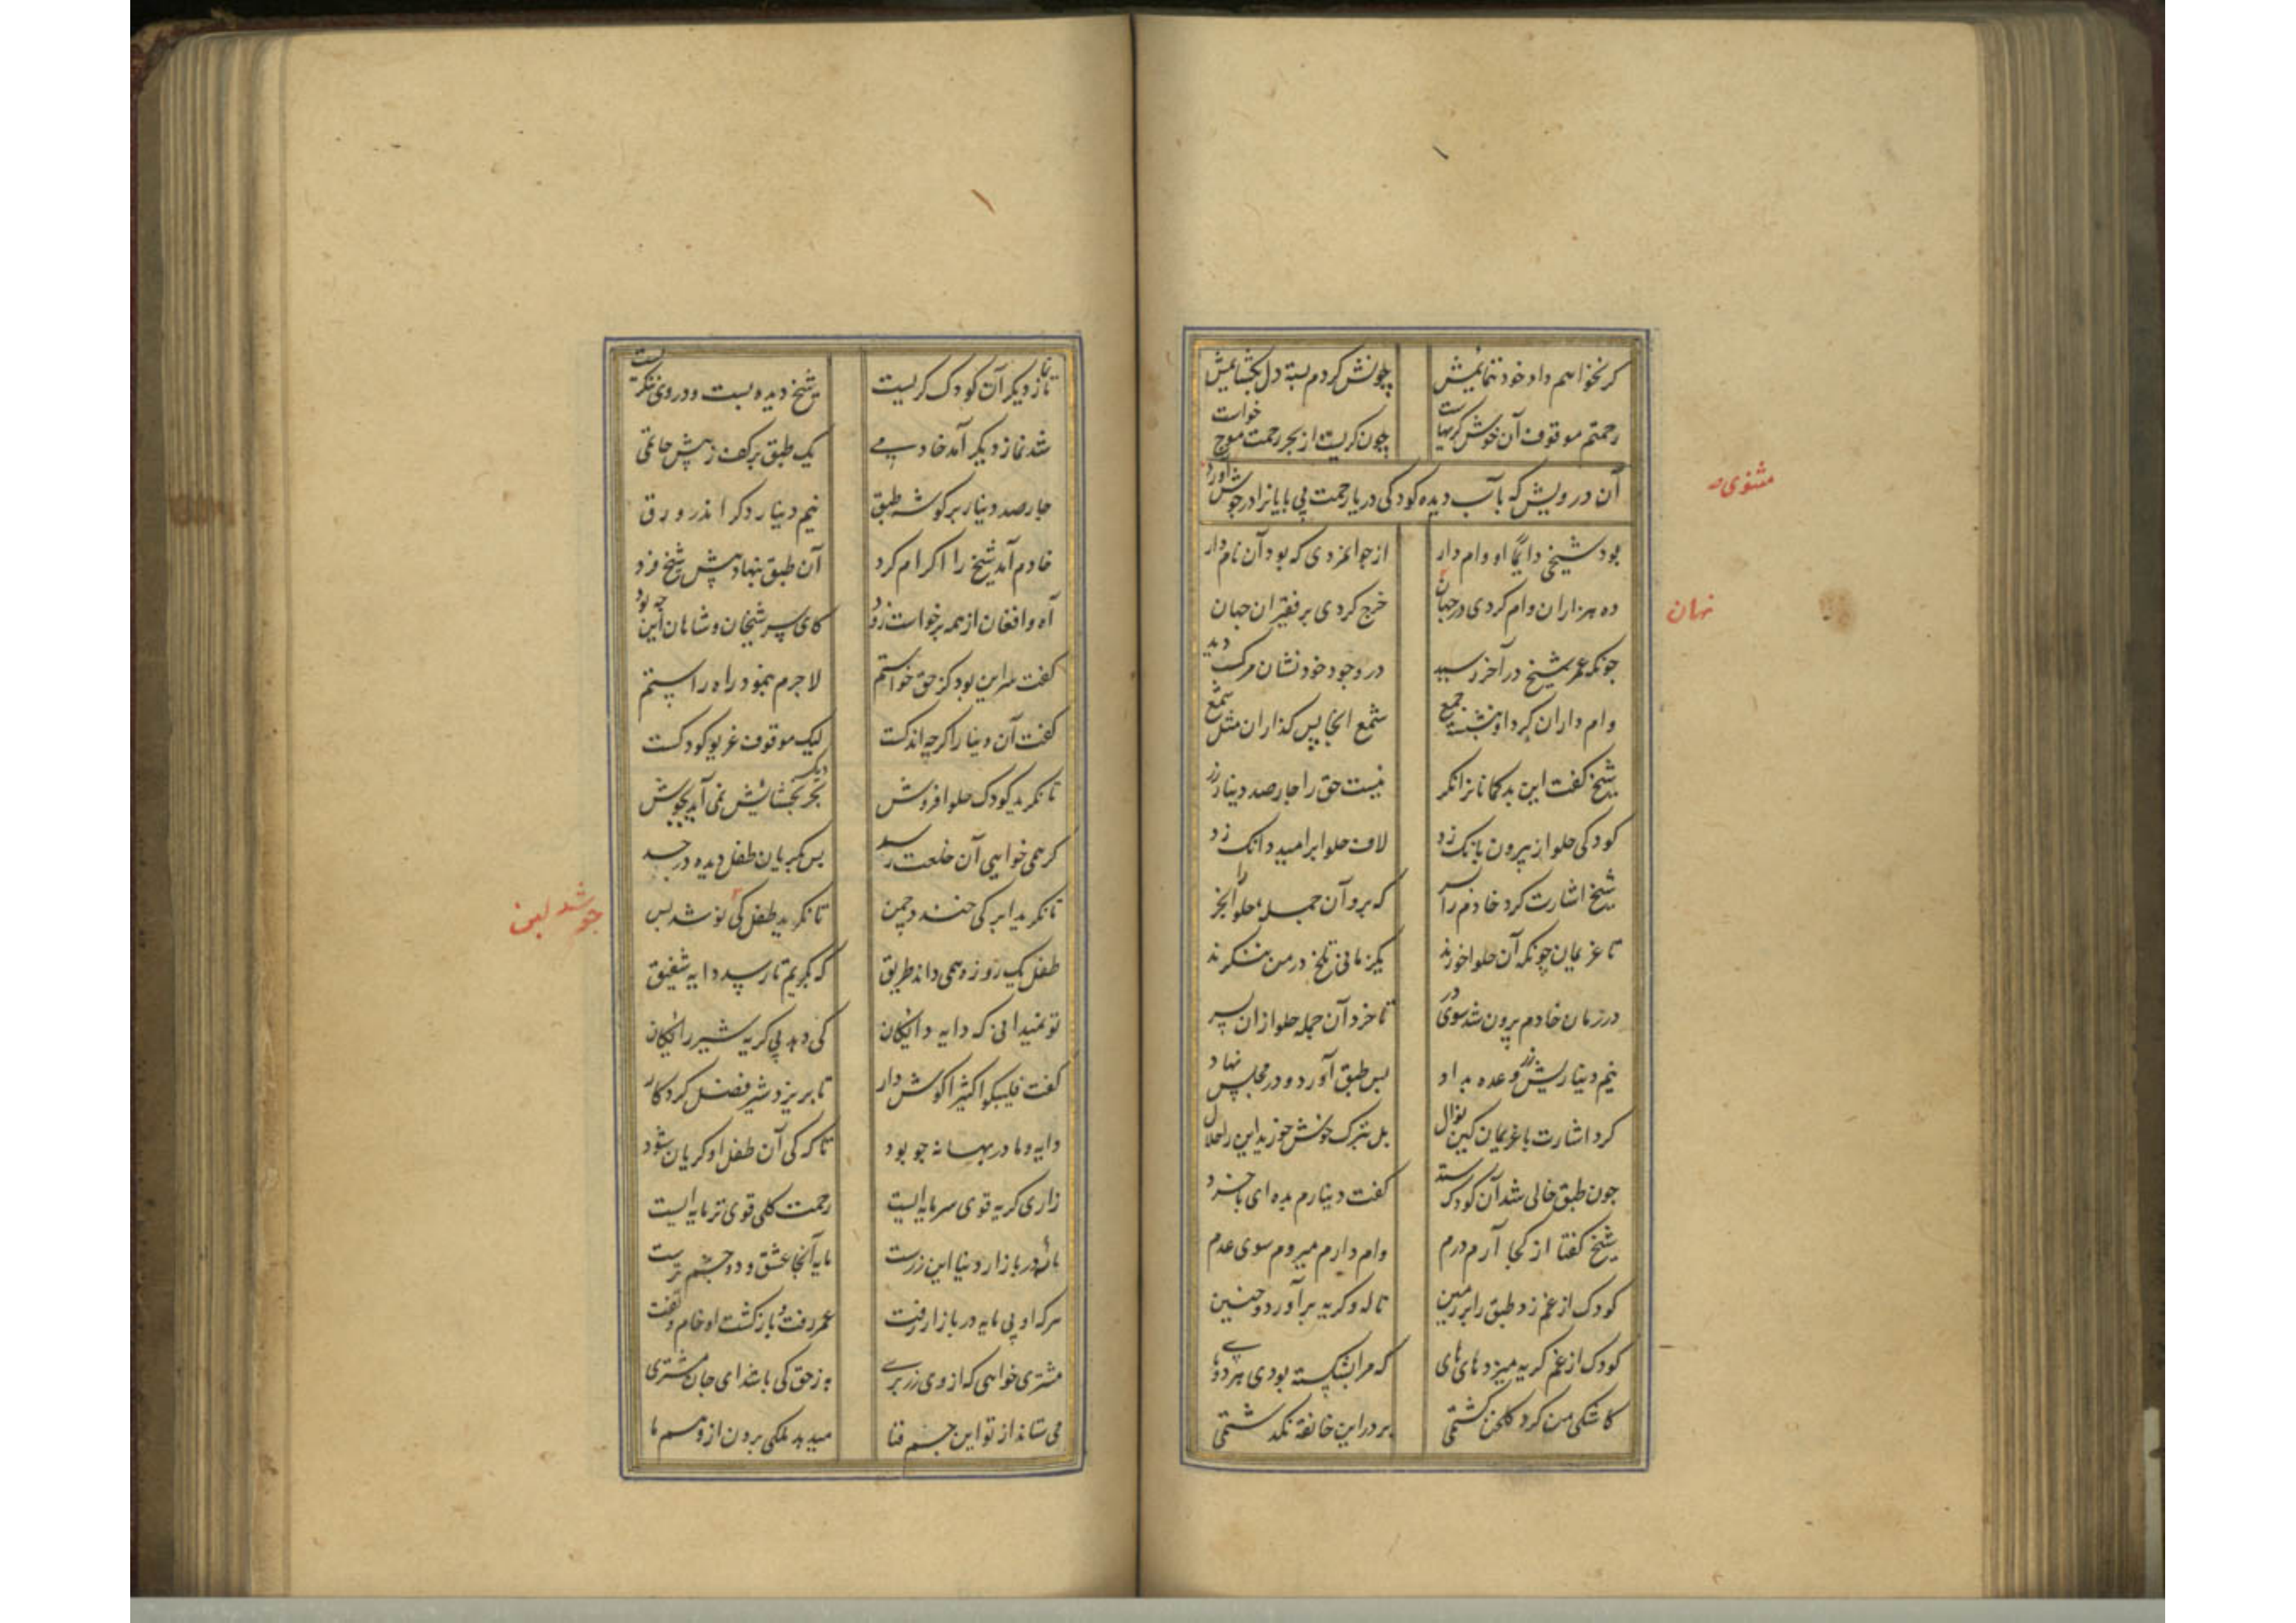 گر نخواهم داد خود ننمایمش چونش کردم بسته دل بگشایمش
رحمتم موقوف آن خوش گریهاست چون گریست از بحر رحمت موج خواست
آن درویش که بآب دیده کودکی دریا رحمت بی پایانرا در جوش آورد
مثنوی
بود شیخی دایما او وام دار از جوانمردی که بود آن نام دار
ده هزاران وام کردی در جهان خرج کردی بر فقیران جهان
نهان
چونکه عمر شیخ در آخر رسید در وجود خود نشان مرگ دید
وام داران گرد او بنشسته جمع شمع انجا پس گذاران مثل شمع
شیخ گفت این بد کمانانرا نکر نیست حق را چارصد دینار زر
کودکی حلوا ز بیرون بانک زد لاف حلوا بر امید دانک زد
شیخ اشارت کرد خادم را بسر که برو آن جمله حلوا را بخر
تا غریمان چونکه آن حلوا خورند یکزمانی تلخ در من ننگرند
در زمان خادم برون شد سوی در تا خرد آن جمله حلوا زان پسر
نیم دینار زر وعده بداد بس طبق آورد و در مجلس نهاد
کرد اشارت با غریمان کین نوال بل تبرک خوش خورید این را حلال
چون طبق خالی شد آن کودک ستد گفت دینارم بده ای با خرد
شیخ گفتا از کجا آرم درم وام دارم میروم سوی عدم
کودک از غم زد طبق را بر زمین ناله و گریه برآورد و حنین
کودک از غم گریه میزد های های که مرا بشکسته بودی هر دو پای
کاشکی من گرد گلخن گشتمی بر در این خانقه نگذشتمی
تا نماز دیگر آن کودک گریست شیخ دیده بست و در وی ننگریست
شد نماز دیگر آمد خادمی یک طبق بر کف ز پیش حاتمی
چارصد دینار بر گوشه طبق نیم دینار دگر اندر ورق
خادم آمد شیخ را اکرام کرد آن طبق بنهاد پیش شیخ فرد
آه و افغان از همه برخواست زود کای سر شیخان و شاهان این چه بود
گفت سر این بود کز حق خواستم لاجرم بنمود راه راستم
گفت آن دینار اگرچه اندکست لیک موقوف غریو کودکست
تا نگرید کودک حلوا فروش دیگ بحر بخشایش نمی آید بجوش
گر همی خواهی آن خلعت رسد بس بگریان طفل دیده در جسد
تا نگرید ابر کی خندد چمن تا نگرید طفل کی نوشد لبن
جوشد لبن
طفل یک روزه همی داند طریق که بگریم تا رسد دایه شفیق
تو نمیدانی که دایه دایگان کی دهد بی گریه شیر رایگان
گفت فلیبکوا کثیرا گوش دار تا بریزد شیر فضل کردگار
دایه و مادر بهانه جو بود تا که کی آن طفل او گریان شود
زاری گریه قوی سرمایه ایست رحمت کلی قوی تر مایه ایست
مایه در بازار دنیا این زرست مایه آنجا عشق و دو چشم ترست
هرکه او بی مایه در بازار رفت عمر رفت و بازگشت او خام تفت
مشتری خواهی که از وی زر بری به ز حق کی باشد ای جان مشتری
می ستاند از تو این جسم فنا میدهد ملکی برون از وهم ما